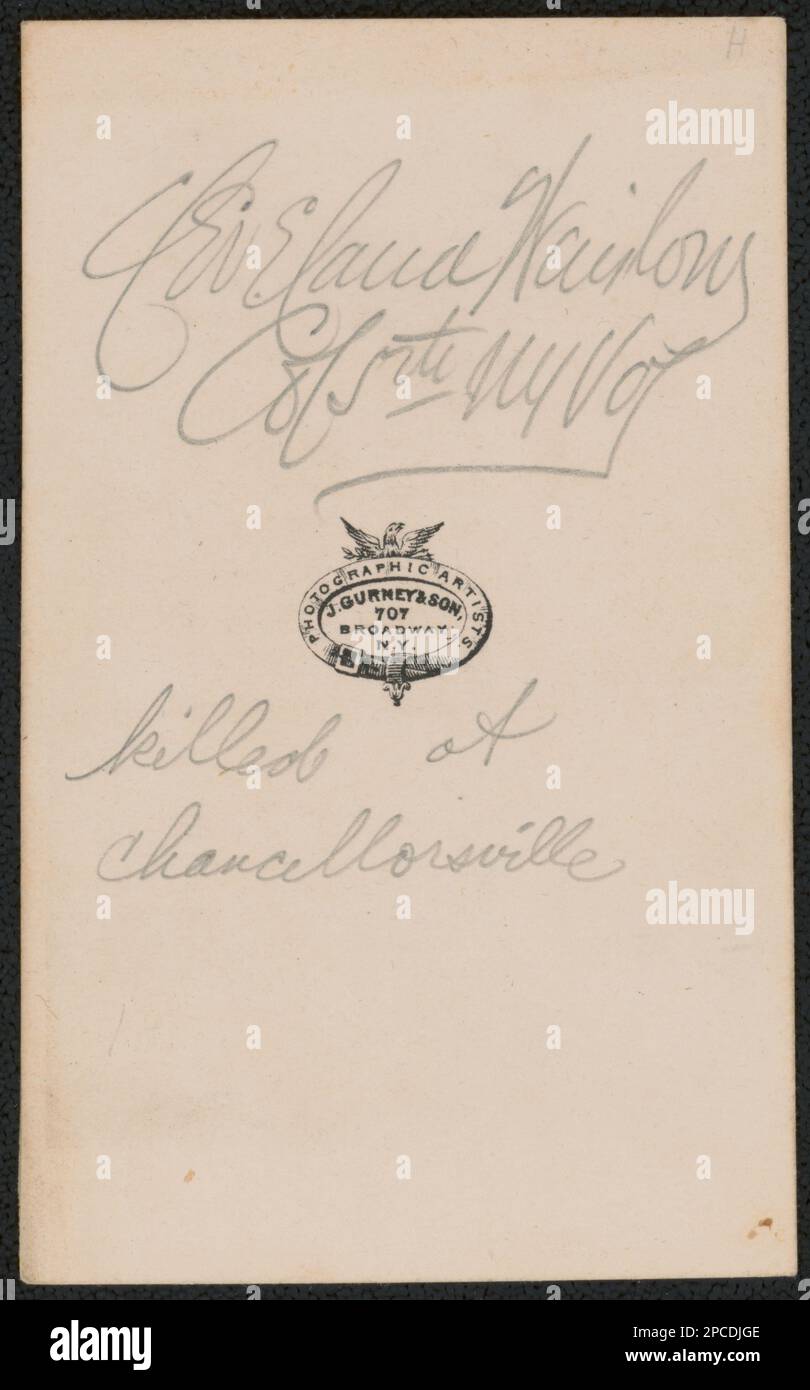 H
Cleveland Winslow
Col 5th NY Vol
PHOTOGRAPHIC ARTISTS
J. GURNEY & SON,
707
BROADWAY,
N.Y.
killed at
chancellorsville
alamy
a
alamy
Image ID: 2PCDJGE
www.alamy.com